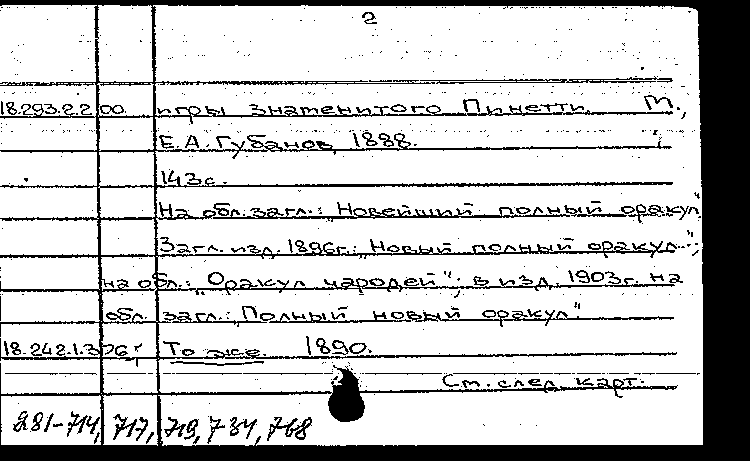 2
18.293.2.200. игры знаменитого Пинетти. М.,
Е.А. Губанов, 1888.
143с.
На обл. загл.: „Новейший полный оракул"
Загл. изд. 1896г.: „Новый полный оракул";
на обл.: „Оракул чародей"; в изд. 1903г. на
обл. загл.: „Полный новый оракул"
18.242.1.376; То же. 1890.
См. след. карт.
281-714, 717, 719, 734, 768